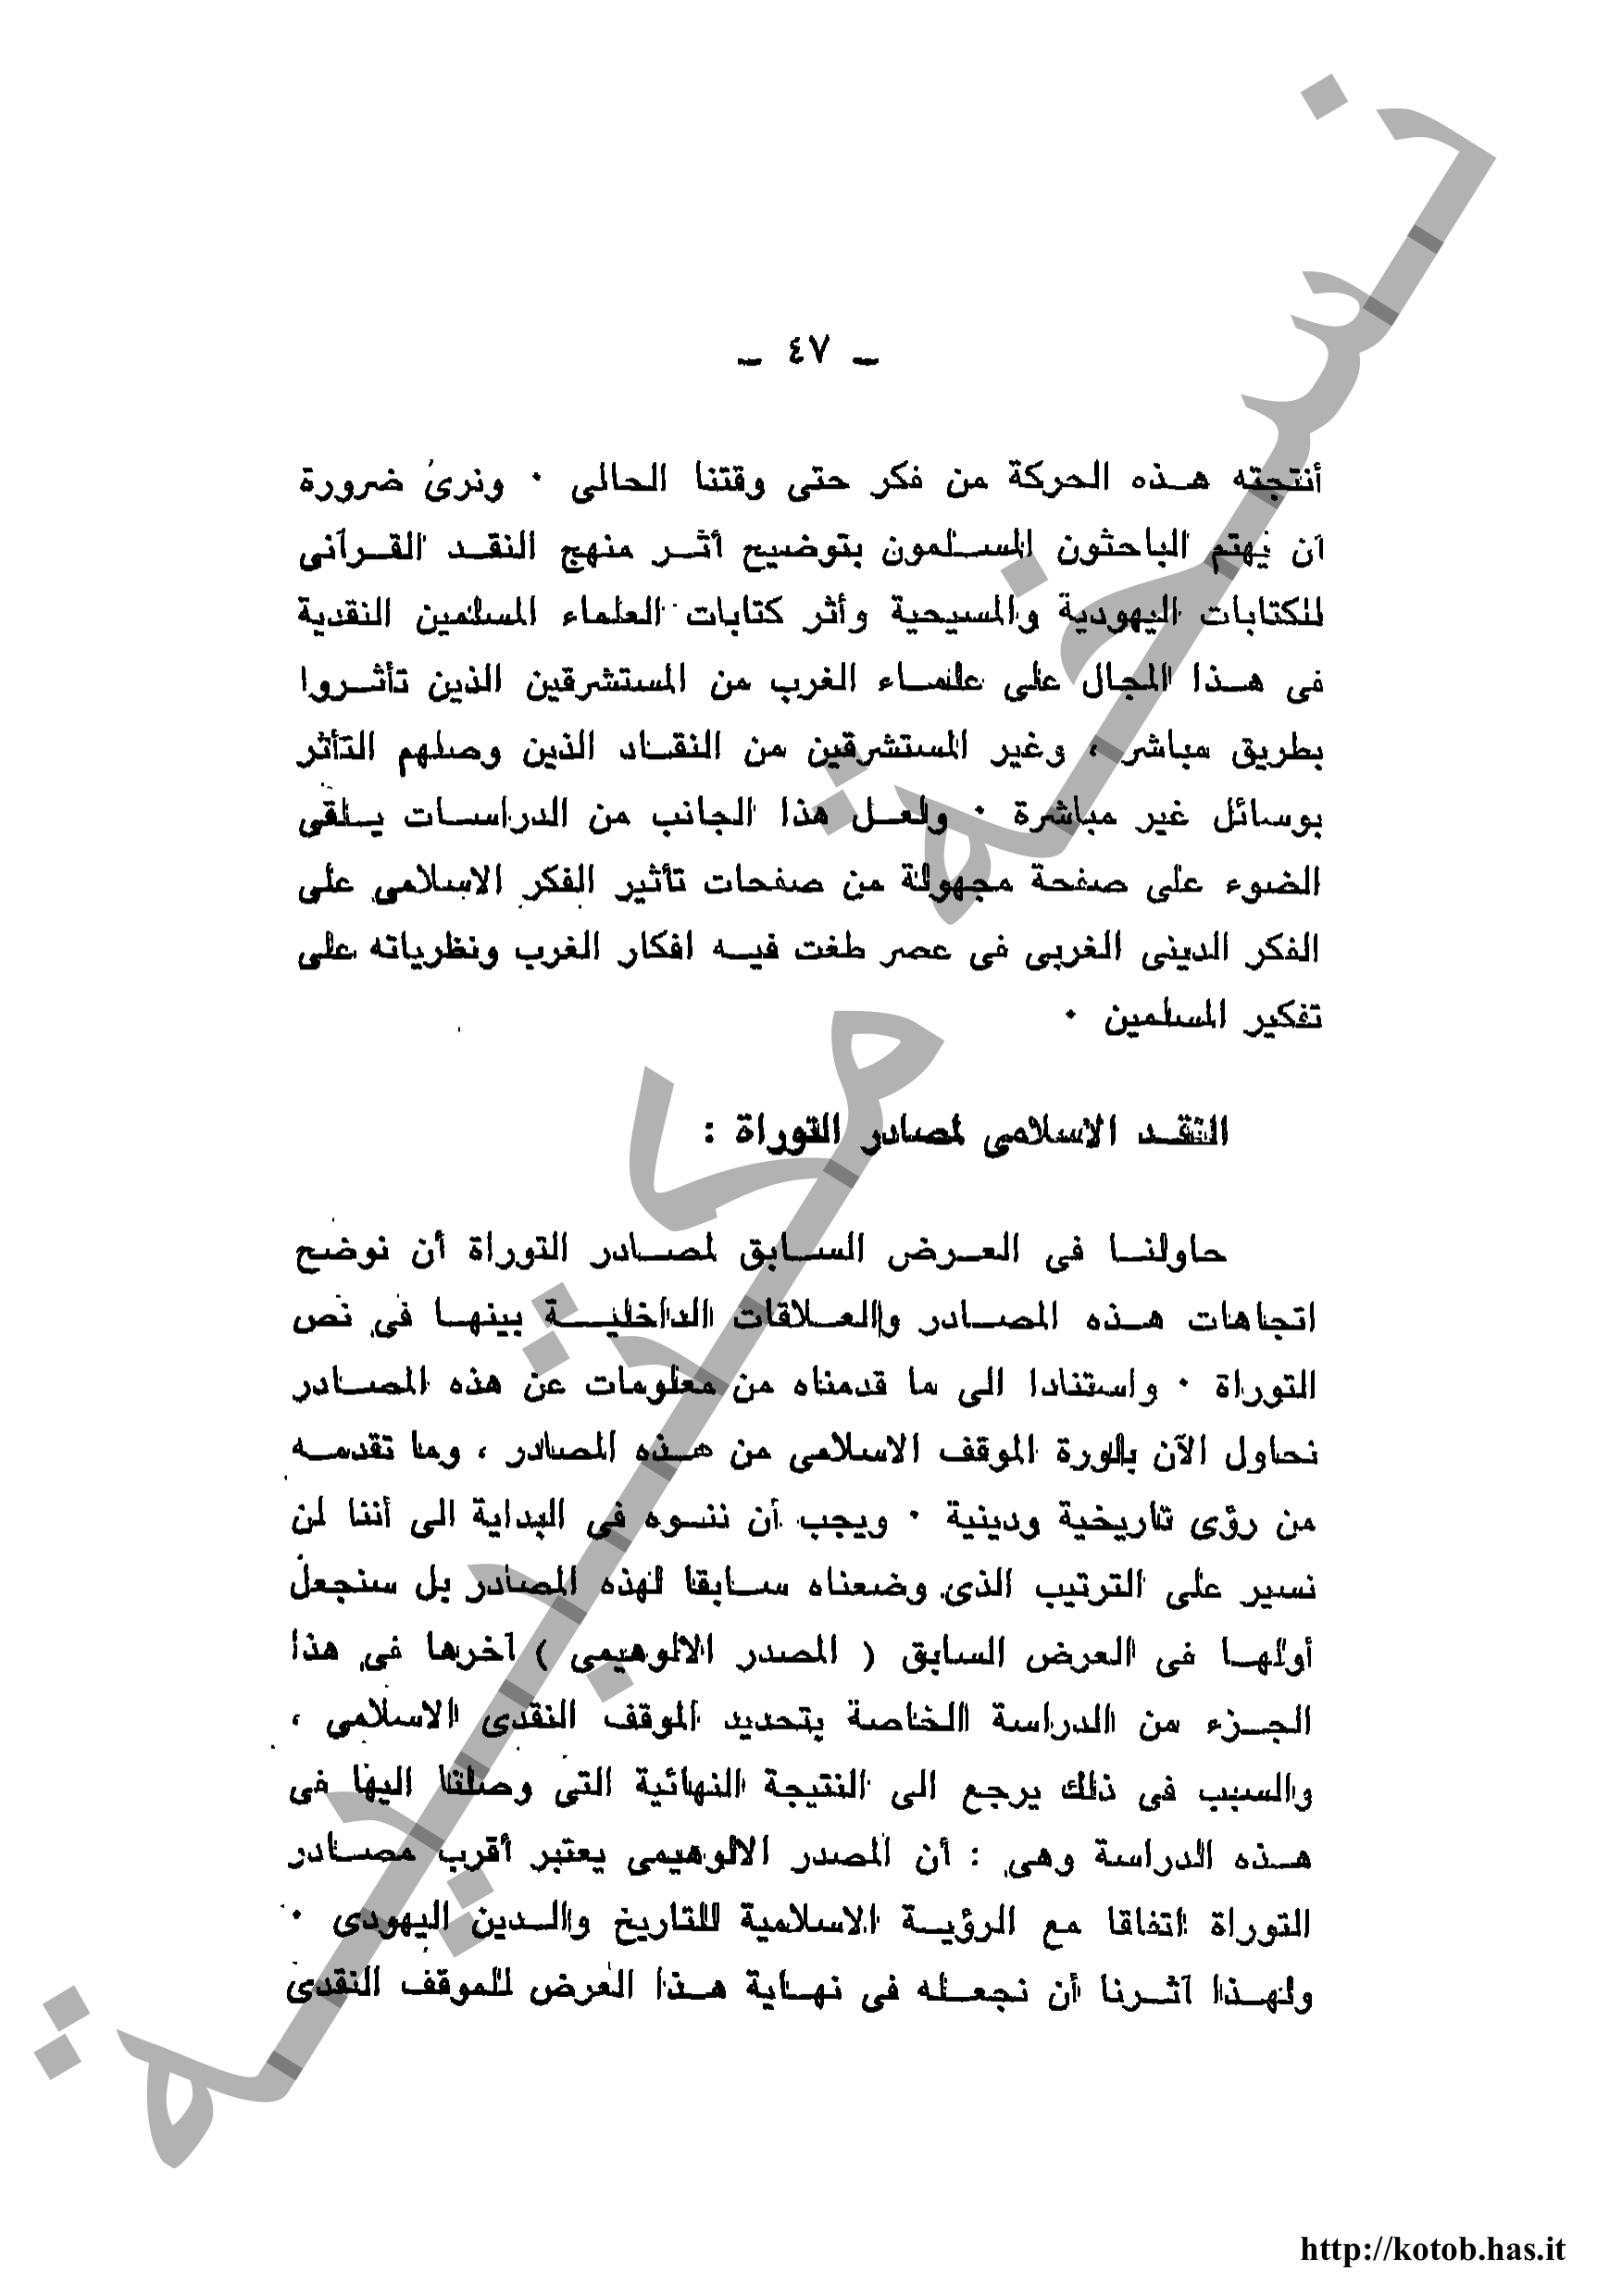 ـ ٤٧ ـ
أنتجته هذه الحركة من فكر حتى وقتنا الحالى ٠ ونرى ضرورة
أن يهتم الباحثون المسلمون بتوضيح أثر منهج النقد القرآنى
للكتابات اليهودية والمسيحية وأثر كتابات العلماء المسلمين النقدية
فى هذا المجال على علماء الغرب من المستشرقين الذين تأثروا
بطريق مباشر ، وغير المستشرقين من النقاد الذين وصلهم التأثر
بوسائل غير مباشرة ٠ ولعل هذا الجانب من الدراسات يلقى
الضوء على صفحة مجهولة من صفحات تأثير الفكر الاسلامى على
الفكر الدينى الغربى فى عصر طغت فيه افكار الغرب ونظرياته على
تفكير المسلمين ٠
النقد الاسلامى لمصادر التوراة :
حاولنا فى العرض السابق لمصادر التوراة أن نوضح
اتجاهات هذه المصادر والعلاقات الداخلية بينها فى نص
التوراة ٠ واستنادا الى ما قدمناه من معلومات عن هذه المصادر
نحاول الآن بلورة الموقف الاسلامى من هذه المصادر ، وما تقدمه
من رؤى تاريخية ودينية ٠ ويجب أن ننوه فى البداية الى أننا لن
نسير على الترتيب الذى وضعناه سابقا لهذه المصادر بل سنجعل
أولها فى العرض السابق ( المصدر الالوهيمى ) آخرها فى هذا
الجزء من الدراسة الخاصة بتحديد الموقف النقدى الاسلامى ،
والسبب فى ذلك يرجع الى النتيجة النهائية التى وصلنا اليها فى
هذه الدراسة وهى : أن المصدر الالوهيمى يعتبر أقرب مصادر
التوراة اتفاقا مع الرؤية الاسلامية للتاريخ والدين اليهودى ٠
ولهذا آثرنا أن نجعله فى نهاية هذا العرض للموقف النقدى
نسخة مكتبة
http://kotob.has.it